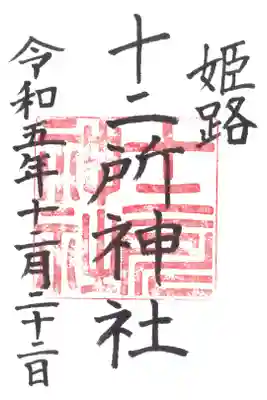 姫路
十二所神社
令和五年十一月二十二日